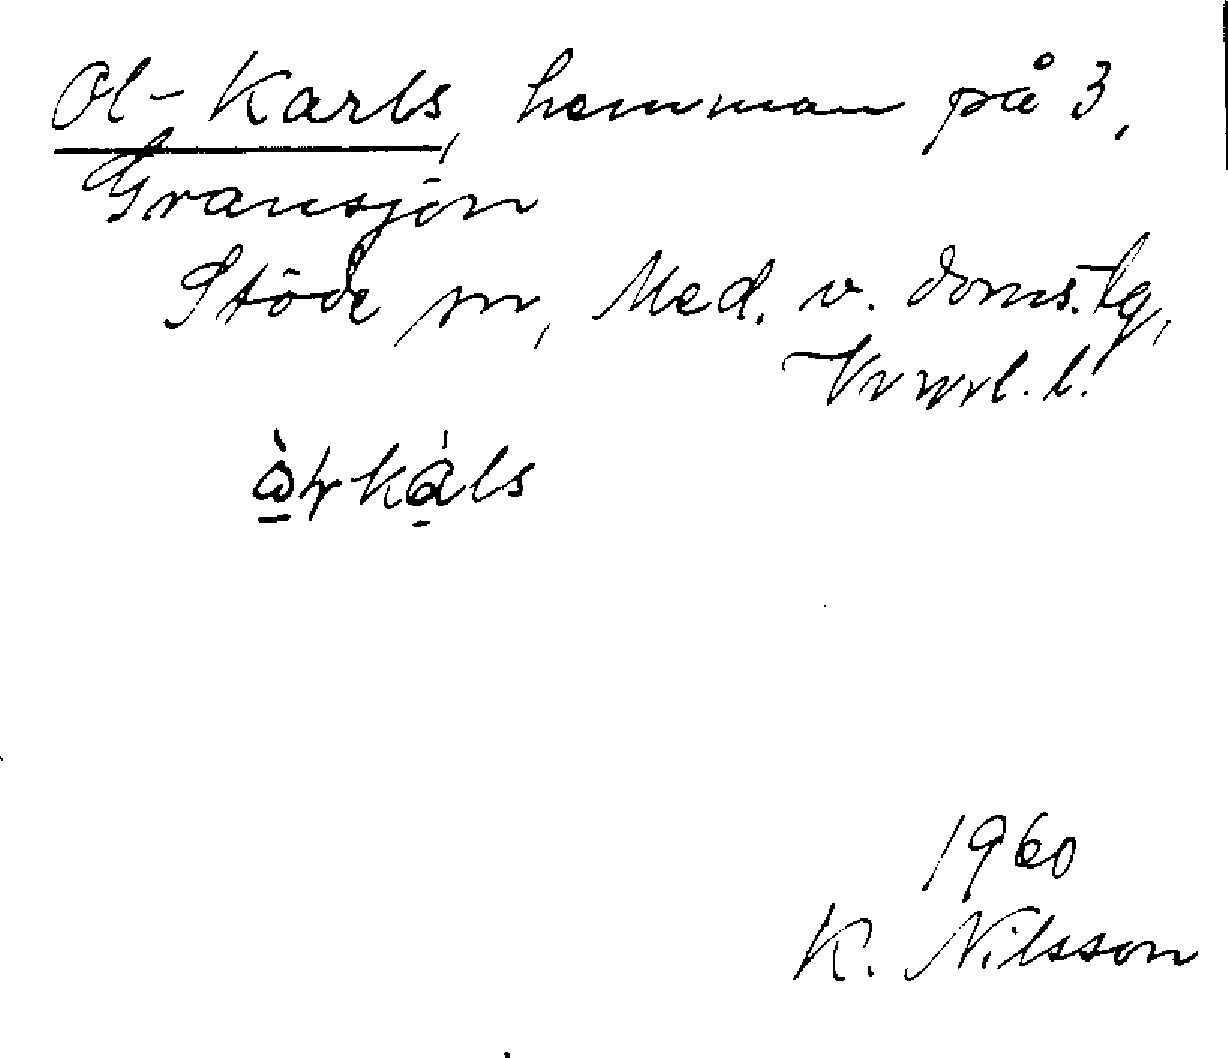 Ol-Karls, hemman på 3,
Gransjön
Stöde sn, Med. v. doms.tg,
Vnrl. l.
1960
K. Nilsson